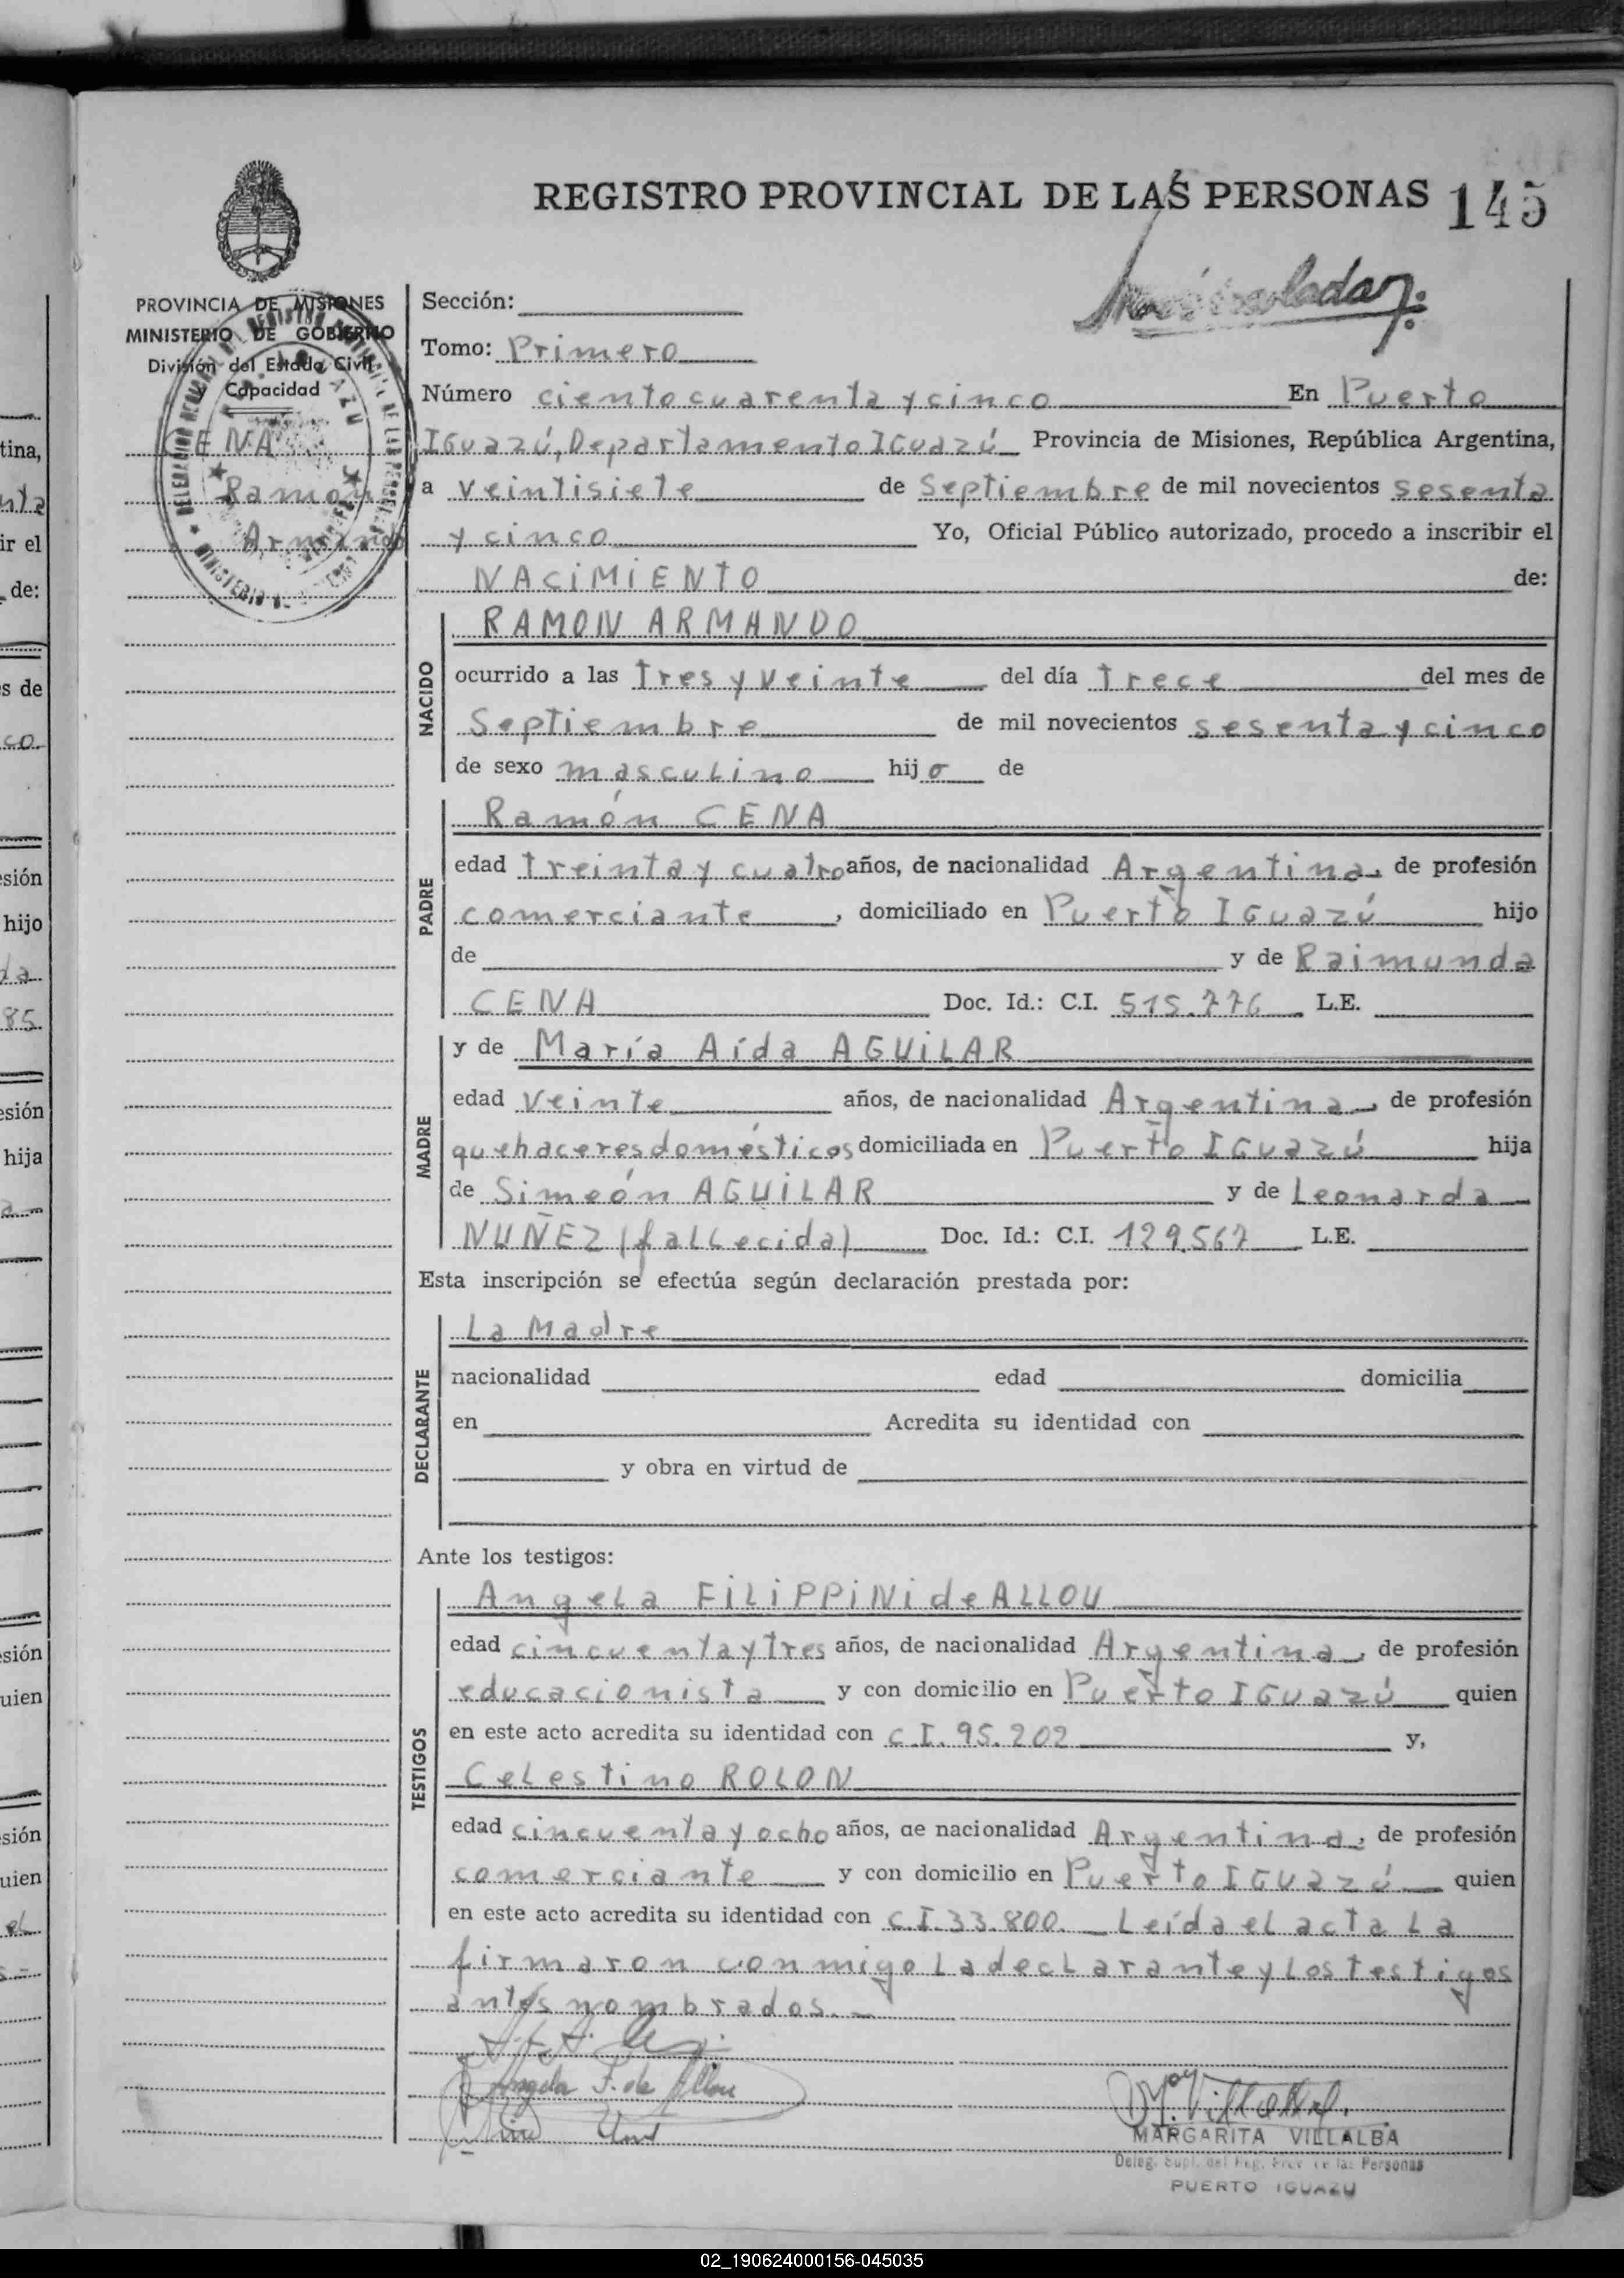 REGISTRO PROVINCIAL DE LAS PERSONAS 145
PROVINCIA DE MISIONES
MINISTERIO DE GOBIERNO
División del Estado Civil
y Capacidad
CENA
Ramón
Armando
Sección:
Tomo: Primero
Número ciento cuarenta y cinco En Puerto
Iguazú, Departamento Iguazú Provincia de Misiones, República Argentina,
a veintisiete de Septiembre de mil novecientos sesenta
y cinco Yo, Oficial Público autorizado, procedo a inscribir el
NACIMIENTO de:
NACIDO
RAMON ARMANDO
ocurrido a las tres y veinte del día trece del mes de
Septiembre de mil novecientos sesenta y cinco
de sexo masculino hijo de
PADRE
Ramón CENA
edad treinta y cuatro años, de nacionalidad Argentina, de profesión
comerciante, domiciliado en Puerto Iguazú hijo
de y de Raimunda
CENA Doc. Id.: C.I. 515.776 L.E.
MADRE
y de María Aída AGUILAR
edad veinte años, de nacionalidad Argentina, de profesión
quehaceres domésticos domiciliada en Puerto Iguazú hija
de Simeón AGUILAR y de Leonarda
NUÑEZ (fallecida) Doc. Id.: C.I. 129.567 L.E.
Esta inscripción se efectúa según declaración prestada por:
DECLARANTE
La Madre
nacionalidad edad domicilia
en Acredita su identidad con
y obra en virtud de
Ante los testigos:
TESTIGOS
Angela FILIPPINI de ALLOU
edad cincuenta y tres años, de nacionalidad Argentina, de profesión
educacionista y con domicilio en Puerto Iguazú quien
en este acto acredita su identidad con C.I. 95.202 y,
Celestino ROLON
edad cincuenta y ocho años, de nacionalidad Argentina, de profesión
comerciante y con domicilio en Puerto Iguazú quien
en este acto acredita su identidad con C.I. 33.800. Leída el acta la
firmaron conmigo la declarante y los testigos
antes nombrados.
Angela F. de Allou
MARGARITA VILLALBA
Deleg. Supl. del Reg. Prov. de las Personas
PUERTO IGUAZU
02_190624000156-045035